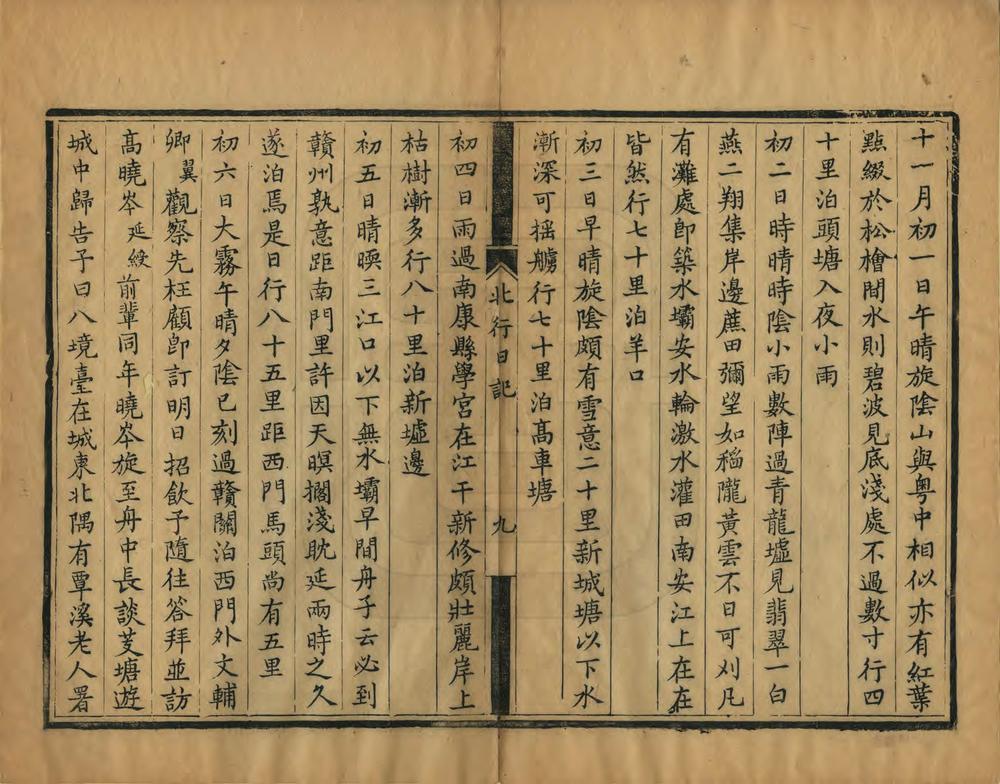 十一月初一日午晴旋陰山與粵中相似亦有紅葉
點綴於松檜間水則碧波見底淺處不過數寸行四
十里泊頭塘入夜小雨
初二日時晴時陰小雨數陣過青龍墟見翡翠一白
燕二翔集岸邊蔗田彌望如稻隴黃雲不日可刈凡
有灘處卽築水壩安水輪激水灌田南安江上在在
皆然行七十里泊羊口
初三日早晴旋陰頗有雪意二十里新城塘以下水
漸深可搖艣行七十里泊高車塘
北行日記
九
初四日雨過南康縣學宮在江干新修頗壯麗岸上
枯樹漸多行八十里泊新墟邊
初五日晴暝三江口以下無水壩早間舟子云必到
贛州孰意距南門里許因天暝擱淺耽延兩時之久
遂泊焉是日行八十五里距西門馬頭尚有五里
初六日大霧午晴夕陰巳刻過贛關泊西門外文輔
卿翼觀察先枉顧卽訂明日招飲予隨往答拜並訪
高曉岑延綬前輩同年曉岑旋至舟中長談芰塘遊
城中歸告予曰八境臺在城東北隅有覃溪老人署